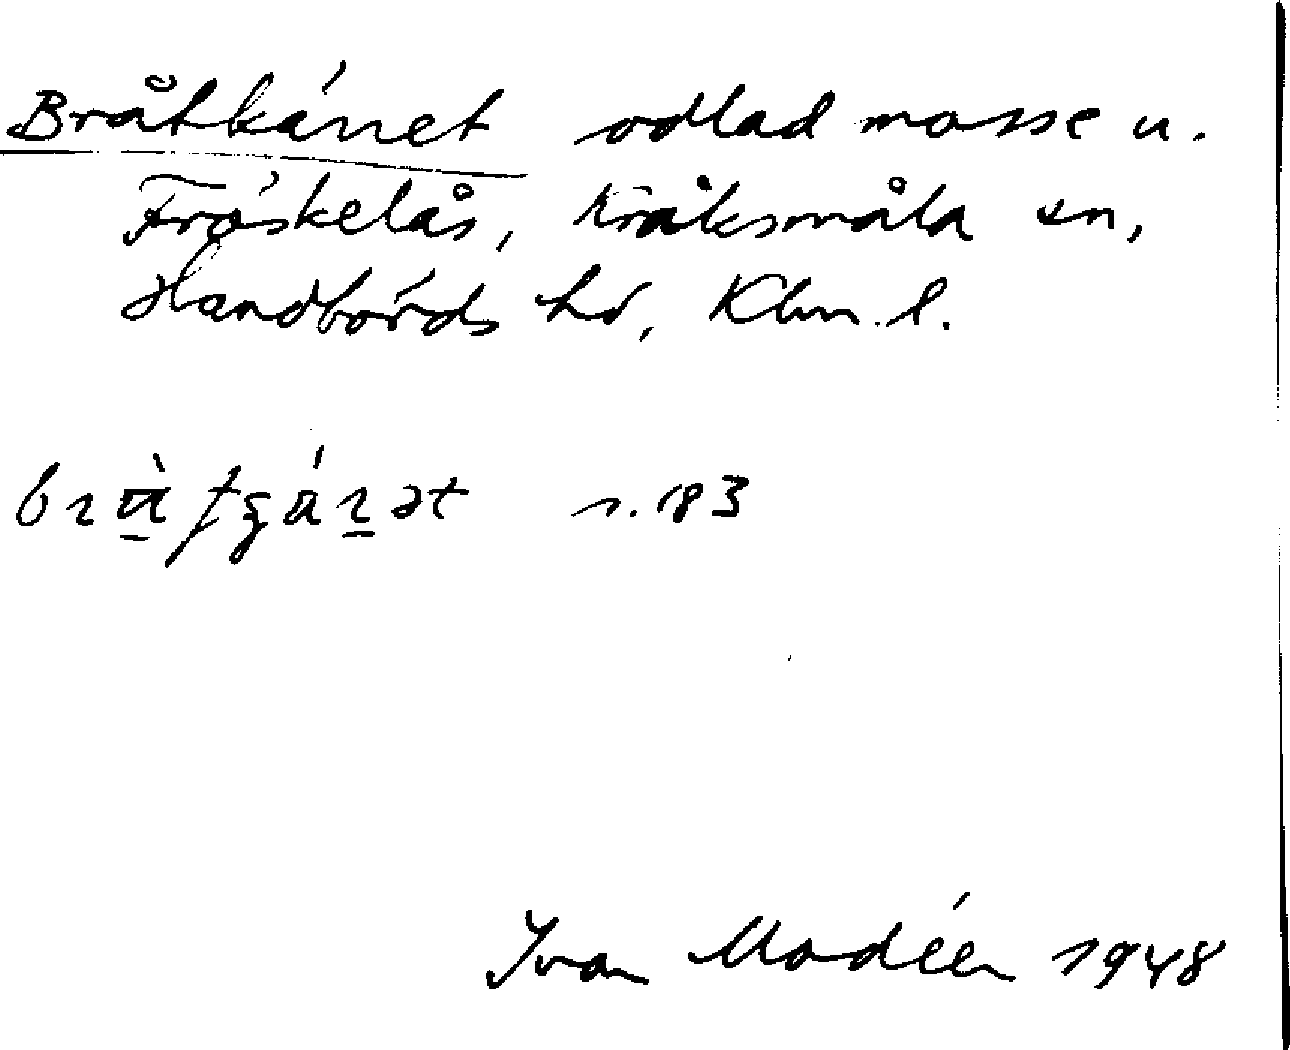 Bråtkärret odlad mosse u.
Fröskelås, Kråksmåla sn,
Handbörds hd, Klm. l.
s. 183
Ivan Modéer 1948